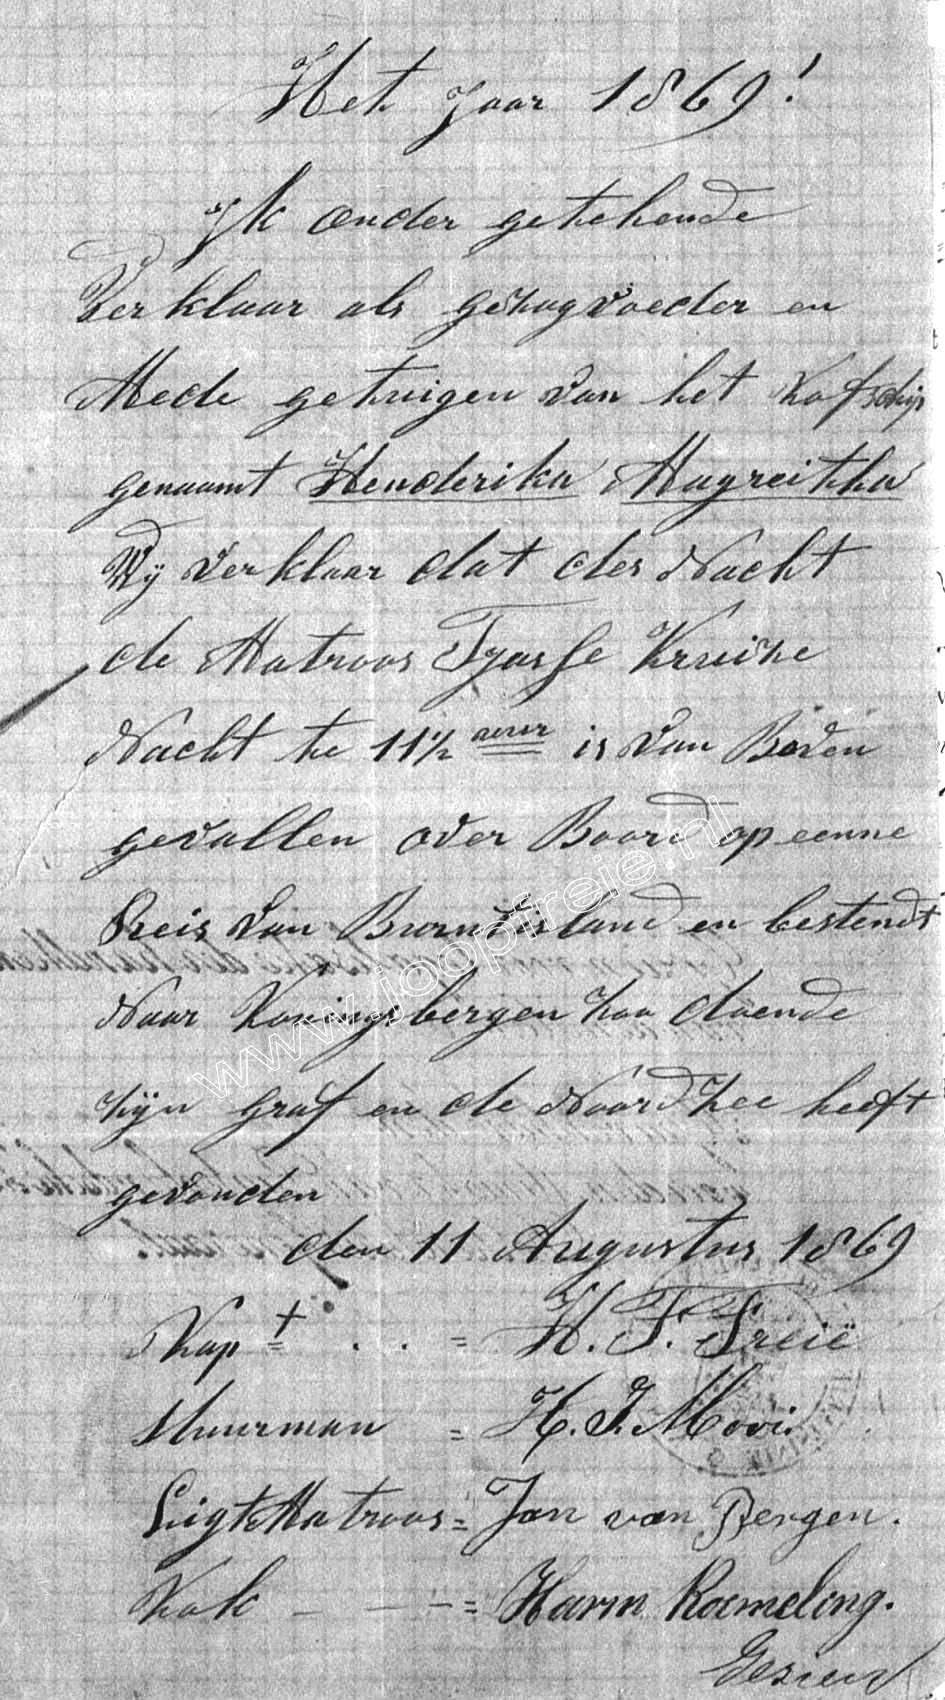 Het Jaar 1869!
Ik onder getekende
Verklaar als gezagvoeder en
Mede getuigen van het Kofschip
genaamt Henderika Magreitha
Wij verklaar dat des Nacht
de Matroos Tjasse Kruize
Nacht te 11½ uur is van Boven
gevallen over Boord op eenne
Reis van Burntisland en bestendt
Naar Konings bergen zoo doende
zijn graf en de Noord Zee heeft
gevonden
den 11 Augustus 1869
Kap = . . = H. F. Freië
Stuurman = H. J. Mooi.
Ligt Matroos = Jan van Bergen.
Kok - - - = Harm Roemeling.
Gezien
www.joopfreie.nl